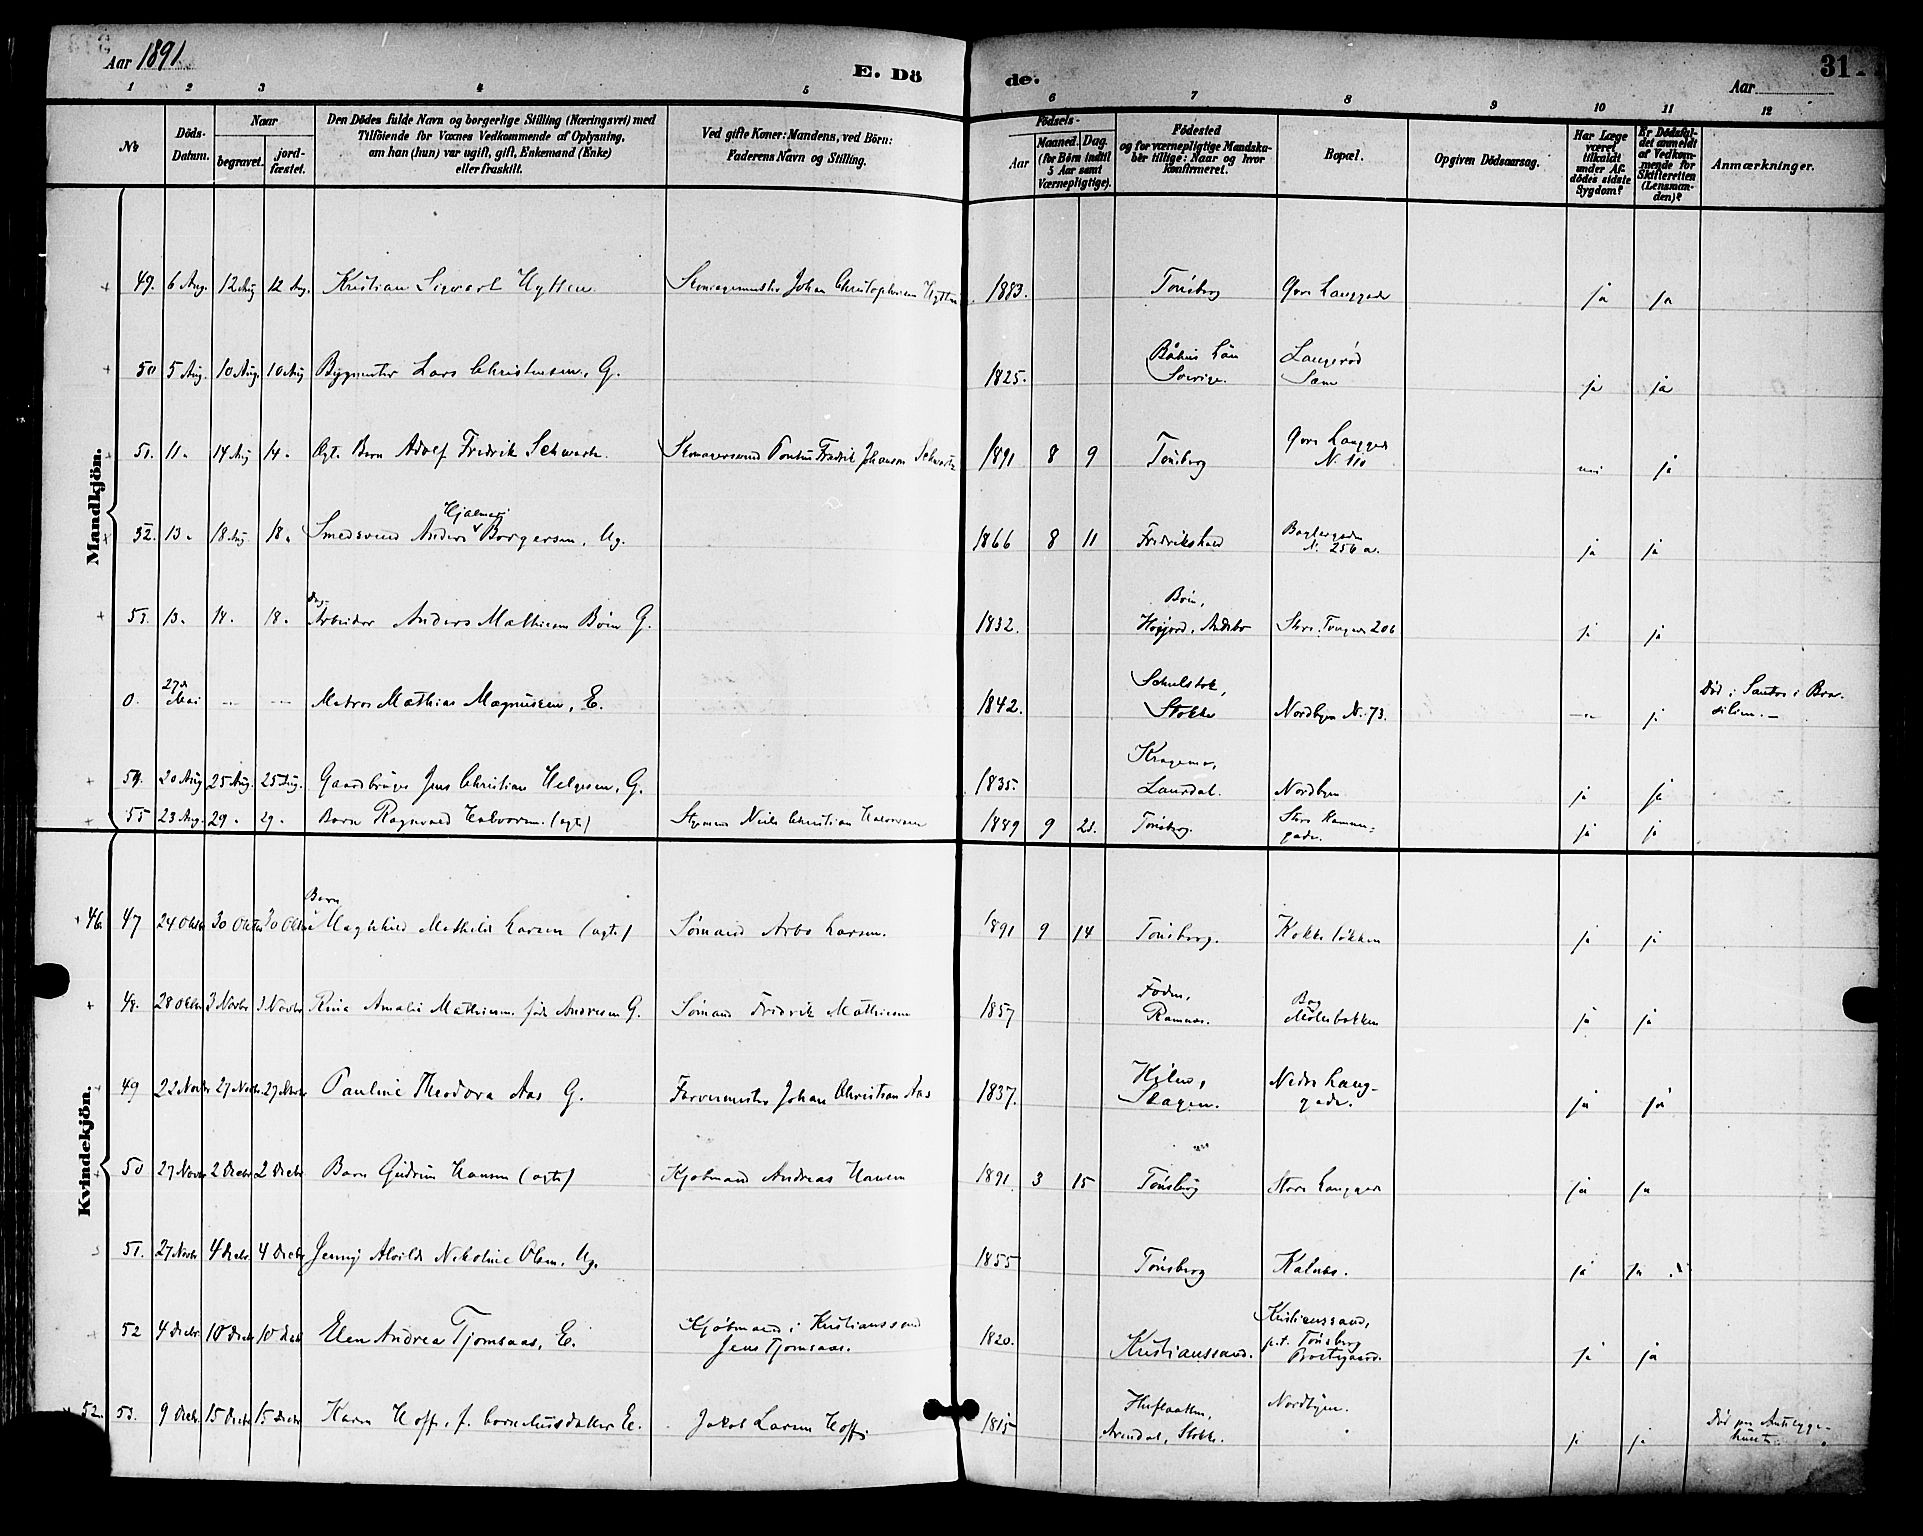 Aar 1891
E. Dö
de.
31
Aar
1 2 3 4 5 6 7 8 9 10 11 12
No
Döds-Datum.
Naar
begravet.
jord-fæstet.
Den Dödes fulde Navn og borgerlige Stilling (Næringsvei) med
Tilföiende for Voxnes Vedkommende af Oplysning,
om han (hun) var ugift, gift, Enkemand (Enke)
eller fraskilt.
Ved gifte Koner: Mandens, ved Börn:
Faderens Navn og Stilling.
Födsels-
Aar
Maaned. Dag.
(for Börn indtil
5 Aar samt
Værnepligtige).
Födested
og for værnepligtige Mandska-
ber tillige: Naar og hvor
konfirmeret.
Bopæl.
Opgiven Dödsaarsag.
Har Læge
været
tilkaldt
under Af-
dödes sidste
Sygdom?
Er Dödsfal-
det anmeldt
af Vedkom-
mende for
Skifteretten
(Lensman-
den)?
Anmærkninger.
Mandkjön.
49. 6 Aug. 12 Aug 12 Aug. Kristian Sigvart Hytten. Skomagermester Johan Christophersen Hytten 1883. Tönsberg Övre Langgade ja ja
50 5 Aug. 10 Aug. 10 Aug Bygmester Lars Christensen, G. 1825. Båhus Län Sverige. Langerød Sæm ja ja
51. 11 " 14 Aug 14 " Ægt. Barn Adolf Fredrik Schwartz. Skomagersvend Pontus Fredrik Johanson Schwartz 1891 8 9 Tönsberg Övre Langgade N. 110 nei ja
52. 13 " 18 Aug 18 " Smedsvend Anders Hjalmar Borgersen, Ug. 1866 8 11 Fredrikshald Baglergaden N. 256 a. ja ja
53. 13 " 18. 18 " Dag-Arbeider Anders Mathisen Böen G. 1832. Böen, Høijord, Andebo Store Tvergade 206 ja ja
0. 27de Mai -- -- Matros Mathias Magnussen, E. 1842. Stokke Nordbyen N. 73. -- ja Död i Santos i Brasilien. -
54. 20 Aug 25 Aug. 25 Aug. Gaardbruger Jens Christian Helgesen, G. 1835. Laurdal. Nordbyen ja ja
55 23 Aug. 29 " 29 " Barn Ragnvald Halvorsen (ægte) Styrmand Niels Christian Halvorsen 1889 9 Tönsberg. Store Kammegade. ja ja
Kvindekjön.
46. 47 24 Oktbr 30 Oktbr 30 Oktbr Barn Magnhild Mathilde Larsen (ægte) Sømand Arbo Larsen. 1891 9 14 Tönsberg. Kokkeløkken ja ja
48. 28 Oktbr 3 Novbr 3 Novbr Rina Amalie Mathiesen født Andresen G. Sømand Fredrik Mathiesen 1857 Foden, Ramnæs. Bag Møllebakken ja ja
49 22 Novbr 27 Novbr. 27 Novbr Pauline Theodora Aas G. Farvermester Johan Christian Aas 1837. Kilen, Slagen. Nedre Langgade. ja ja
50 27 Novbr 2 Decbr 2 Decbr Barn Gudrun Hansen (ægte) Kjøbmand Andreas Hansen 1891. 3 15 Tönsberg Store Langgade ja ja
51. 27 Novbr 4 Decbr. 4 Decbr Jenny Alvilde Nikoline Olsen. Ug. 1855 Tönsberg Kalnes. ja ja
52 4 Decbr 10 Decbr 10 Decbr Elen Andrea Tjomsaas, E. Kjøbmand i Kristianssand Jens Tjomsaas. 1820. Kristianssand. Kristianssand, p.t. Tönsberg ja ja
52. 53. 9 Decbr. 15 Decbr 15 Decbr Karen Hoff, f. Corneliusdatter E. Jakob Larsen Hoff 1815 Arendal, Stokke. Nordbyen. ja ja Död paa